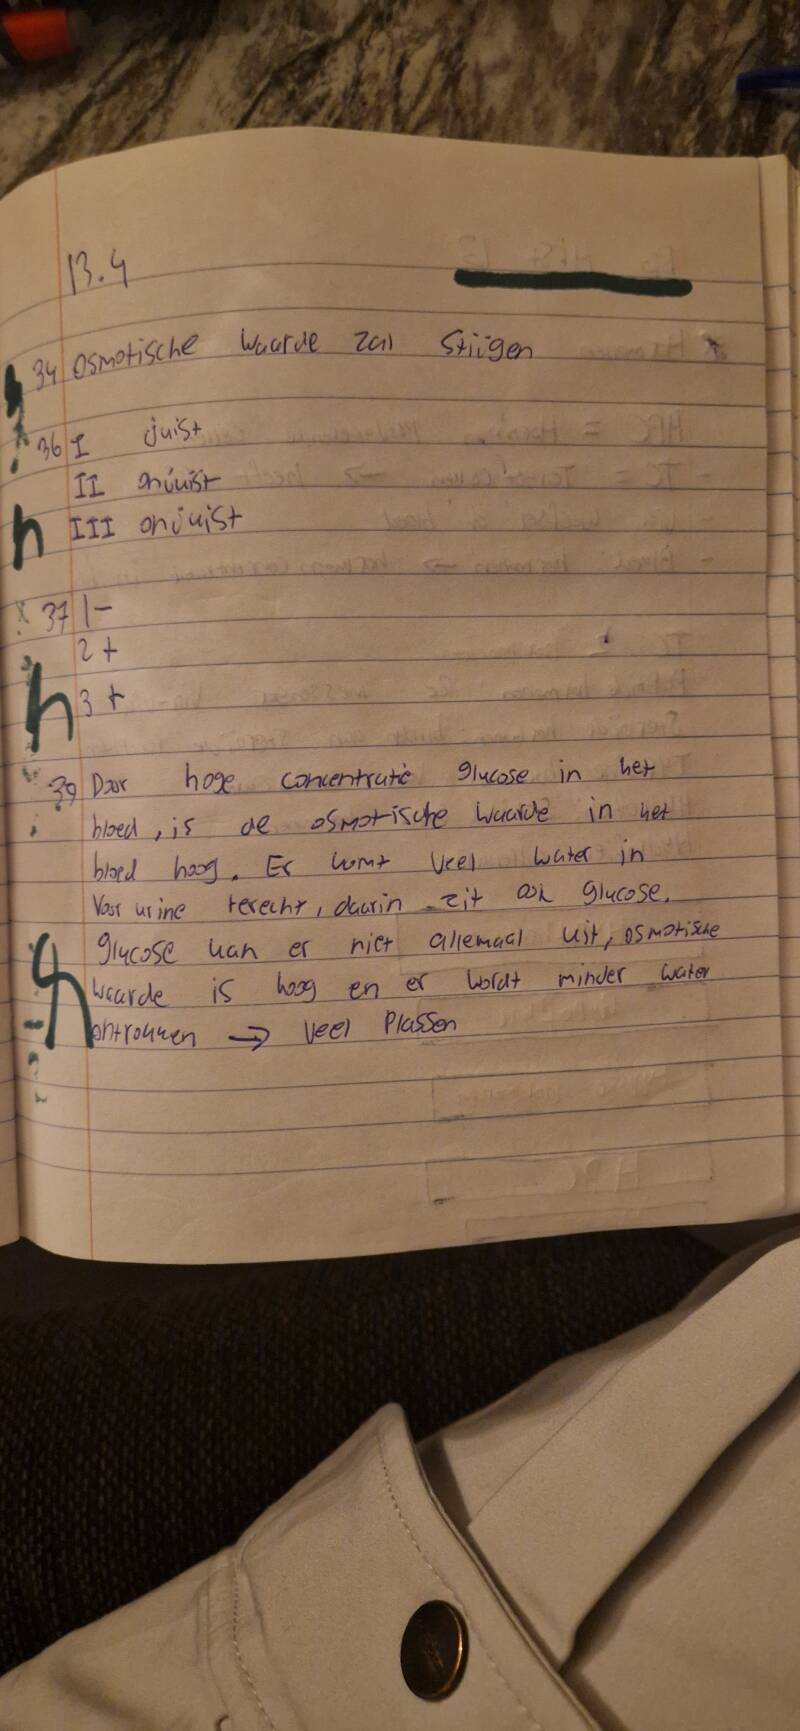 13.4
34 Osmotische waarde zal stijgen
36 I juist
II onjuist
III onjuist
37 1 -
2 +
3 +
39 Door hoge concentratie glucose in het
bloed, is de osmotische waarde in het
bloed hoog. Er komt veel water in
Voor urine terecht, daarin zit ook glucose.
glucose kan er niet allemaal uit, osmotische
waarde is hoog en er wordt minder water
ontrokken → veel plassen